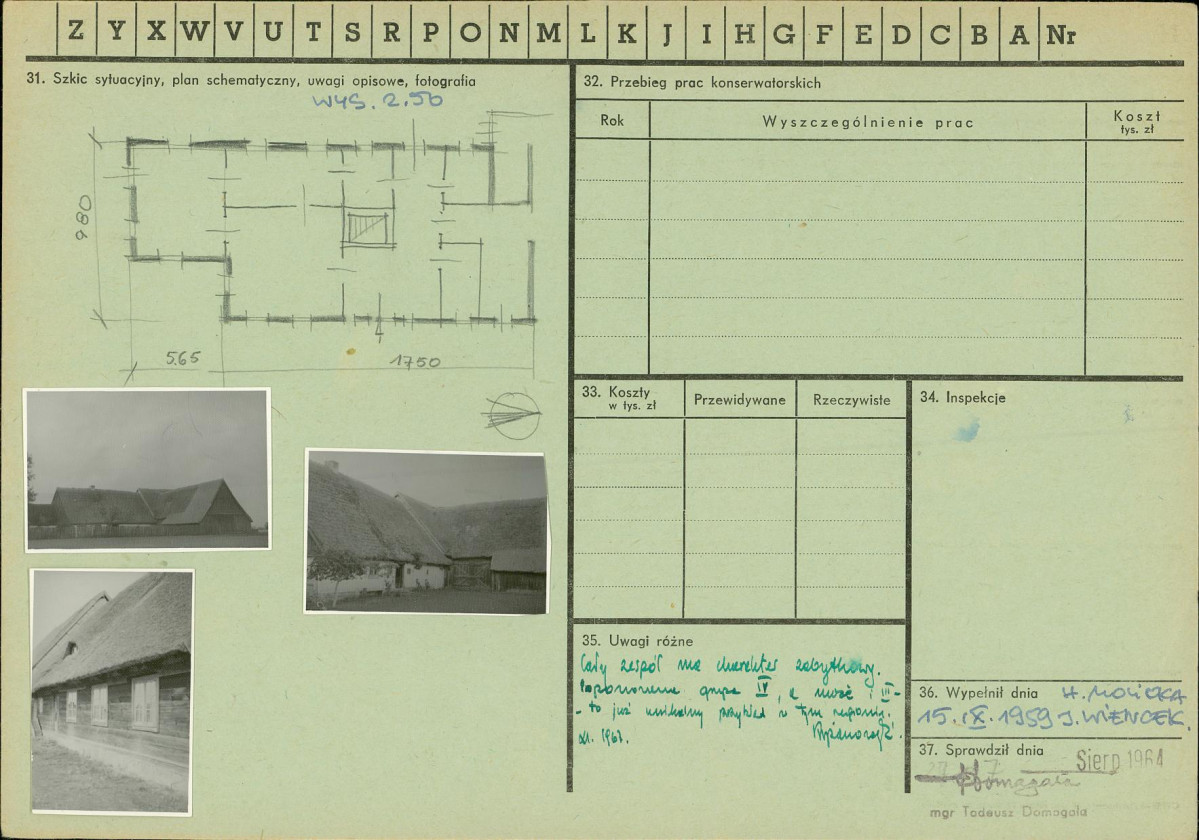 Z Y X W V U T S R P O N M L K J I H G F E D C B A Nr
31. Szkic sytuacyjny, plan schematyczny, uwagi opisowe, fotografia
WYS. 2.50
980
565
1750
32. Przebieg prac konserwatorskich
Rok
Wyszczególnienie prac
Koszt
tys. zł
33. Koszty
w tys. zł
Przewidywane
Rzeczywiste
34. Inspekcje
35. Uwagi różne
Cały zespół ma charakter zabytkowy.
Proponowana grupa IV, a może i III-
- to już unikalny przykład w tym rejonie.
XI. 1963.
36. Wypełnił dnia H. MOLICKA
15.IX.1959 J. WIENCEK.
37. Sprawdził dnia
Sierp 1964
Domagała
mgr Tadeusz Domagała